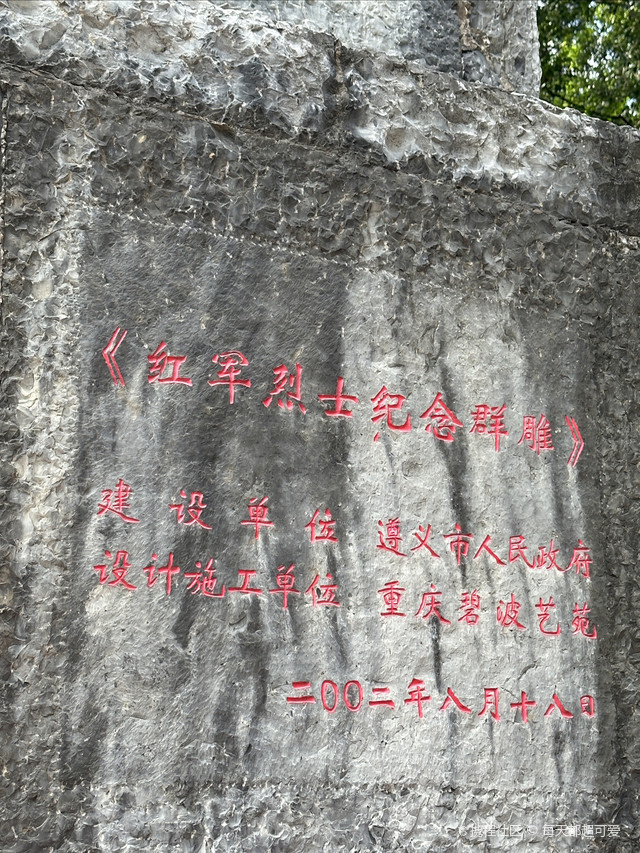 《红军烈士纪念群雕》
建设单位 遵义市人民政府
设计施工单位 重庆碧波艺苑
二〇〇二年八月十八日
每天都超可爱